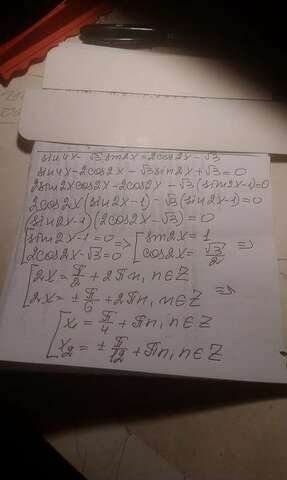 sin4x - √3 sin2x = 2cos2x - √3
sin4x - 2cos2x - √3 sin2x + √3 = 0
2sin2xcos2x - 2cos2x - √3 (sin2x - 1) = 0
2cos2x (sin2x - 1) - √3 (sin2x - 1) = 0
(sin2x - 1) (2cos2x - √3) = 0
[ sin2x - 1 = 0 => [ sin2x = 1 =>
2cos2x - √3 = 0 cos2x = √3/2
[ 2x = π/2 + 2πn, n∈Z =>
2x = ± π/6 + 2πn, n∈Z
[ x₁ = π/4 + πn, n∈Z
x₂ = ± π/12 + πn, n∈Z